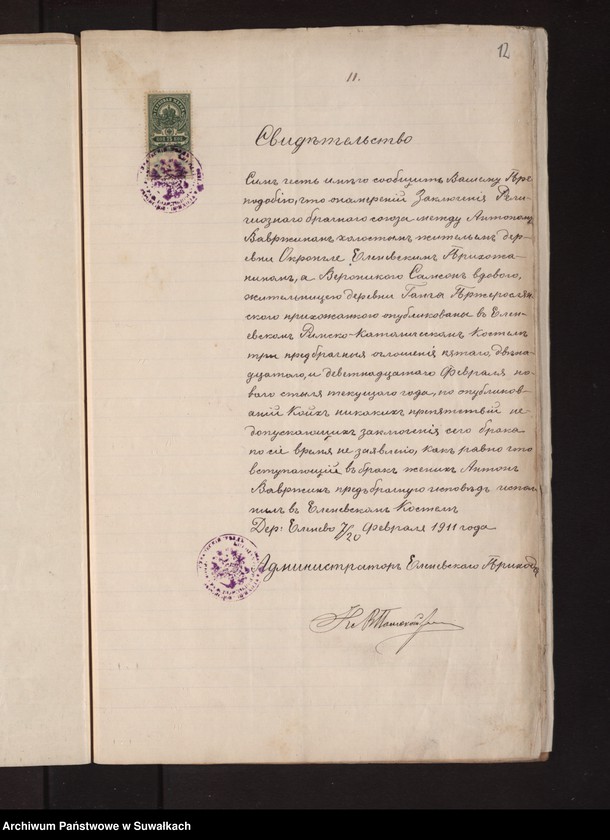 12
11.
Свидѣтельство
Симъ честь имѣю сообщить Вашему Пре-
подобію, что о намѣреніи Заключенія Рели-
гіознаго брачнаго союза между Антономъ
Вавржиномъ, холостымъ жителемъ дер-
евни Окронгле Еленевскимъ Прихожа-
ниномъ, а Вероникою Самсонъ вдовою,
жительницею деревни Пржерослян-
скою прихожанкою опубликованы въ Елен-
евскомъ Римско-Католическомъ Костелѣ
три предбрачныя оглошенія пятаго, двѣна-
дцатаго, и девятнадцатаго Февраля но-
ваго стыля текущаго года, по опубликов-
аніи Коихъ никакихъ препятствій не-
допускающихъ заключенія сего брака
по сіе время не заявлено, какъ равно что
вступающій въ бракъ женихъ Антонъ
Вавржинъ предъбрачную исповѣдь испол-
нилъ въ Еленевскомъ Костелѣ
Дер: Еленево 7/20 Февраля 1911 года
Администраторъ Еленевскаго Прихода
Кс
Archiwum Państwowe w Suwałkach